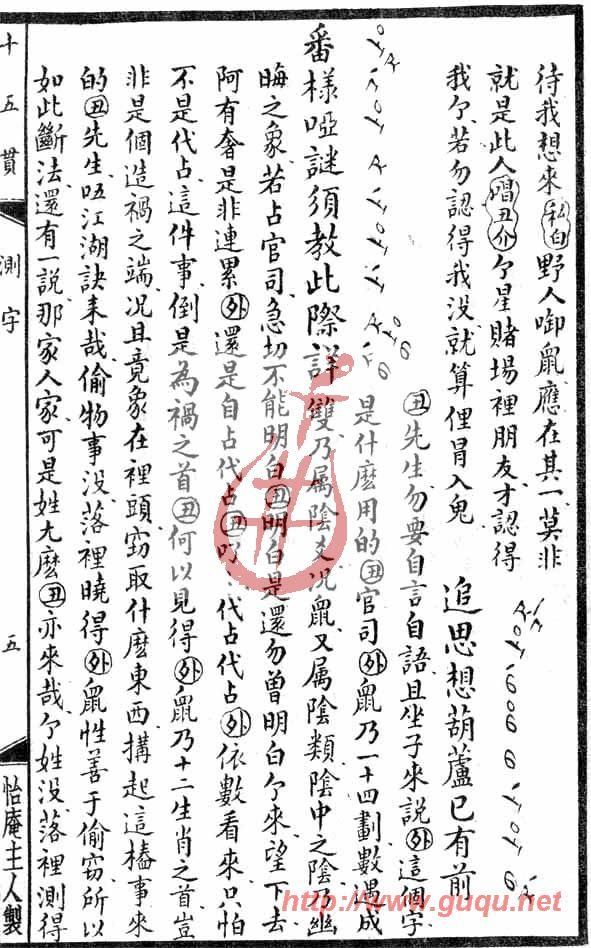 待我想來私白野人啣鼠應在其一莫非
就是此人唱丑介𠆳星賭場裡朋友才認得
我𠆳若勿認得我没就算俚冒入鬼
追思想葫蘆已有前
丑先生勿要自言自語且坐子來說外這個字
是什麽用的丑官司外鼠乃一十四劃數是成
番樣啞謎須教此際詳雙乃属陰爻况鼠又属陰類陰中之陰乃幽
晦之象若占官司急切不能明白丑明白是還勿曾明白𠆳來望下去
阿有奢是非連累外還是自占代占丑代占代占外依數看來只怕
不是代占這件事倒是為禍之首丑何以見得外鼠乃十二生肖之首豈
非是個造禍之端况且竟象在裡頭竊取什麽東西搆起這樁事來
的丑先生唔江湖訣來哉偷物事没落裡曉得外鼠性善于偷竊所以
如此斷法還有一說那家人家可是姓尢麽丑亦來哉𠆳姓没落裡測得
十五貫
測字
五
怡庵主人製
http://www.guqu.net